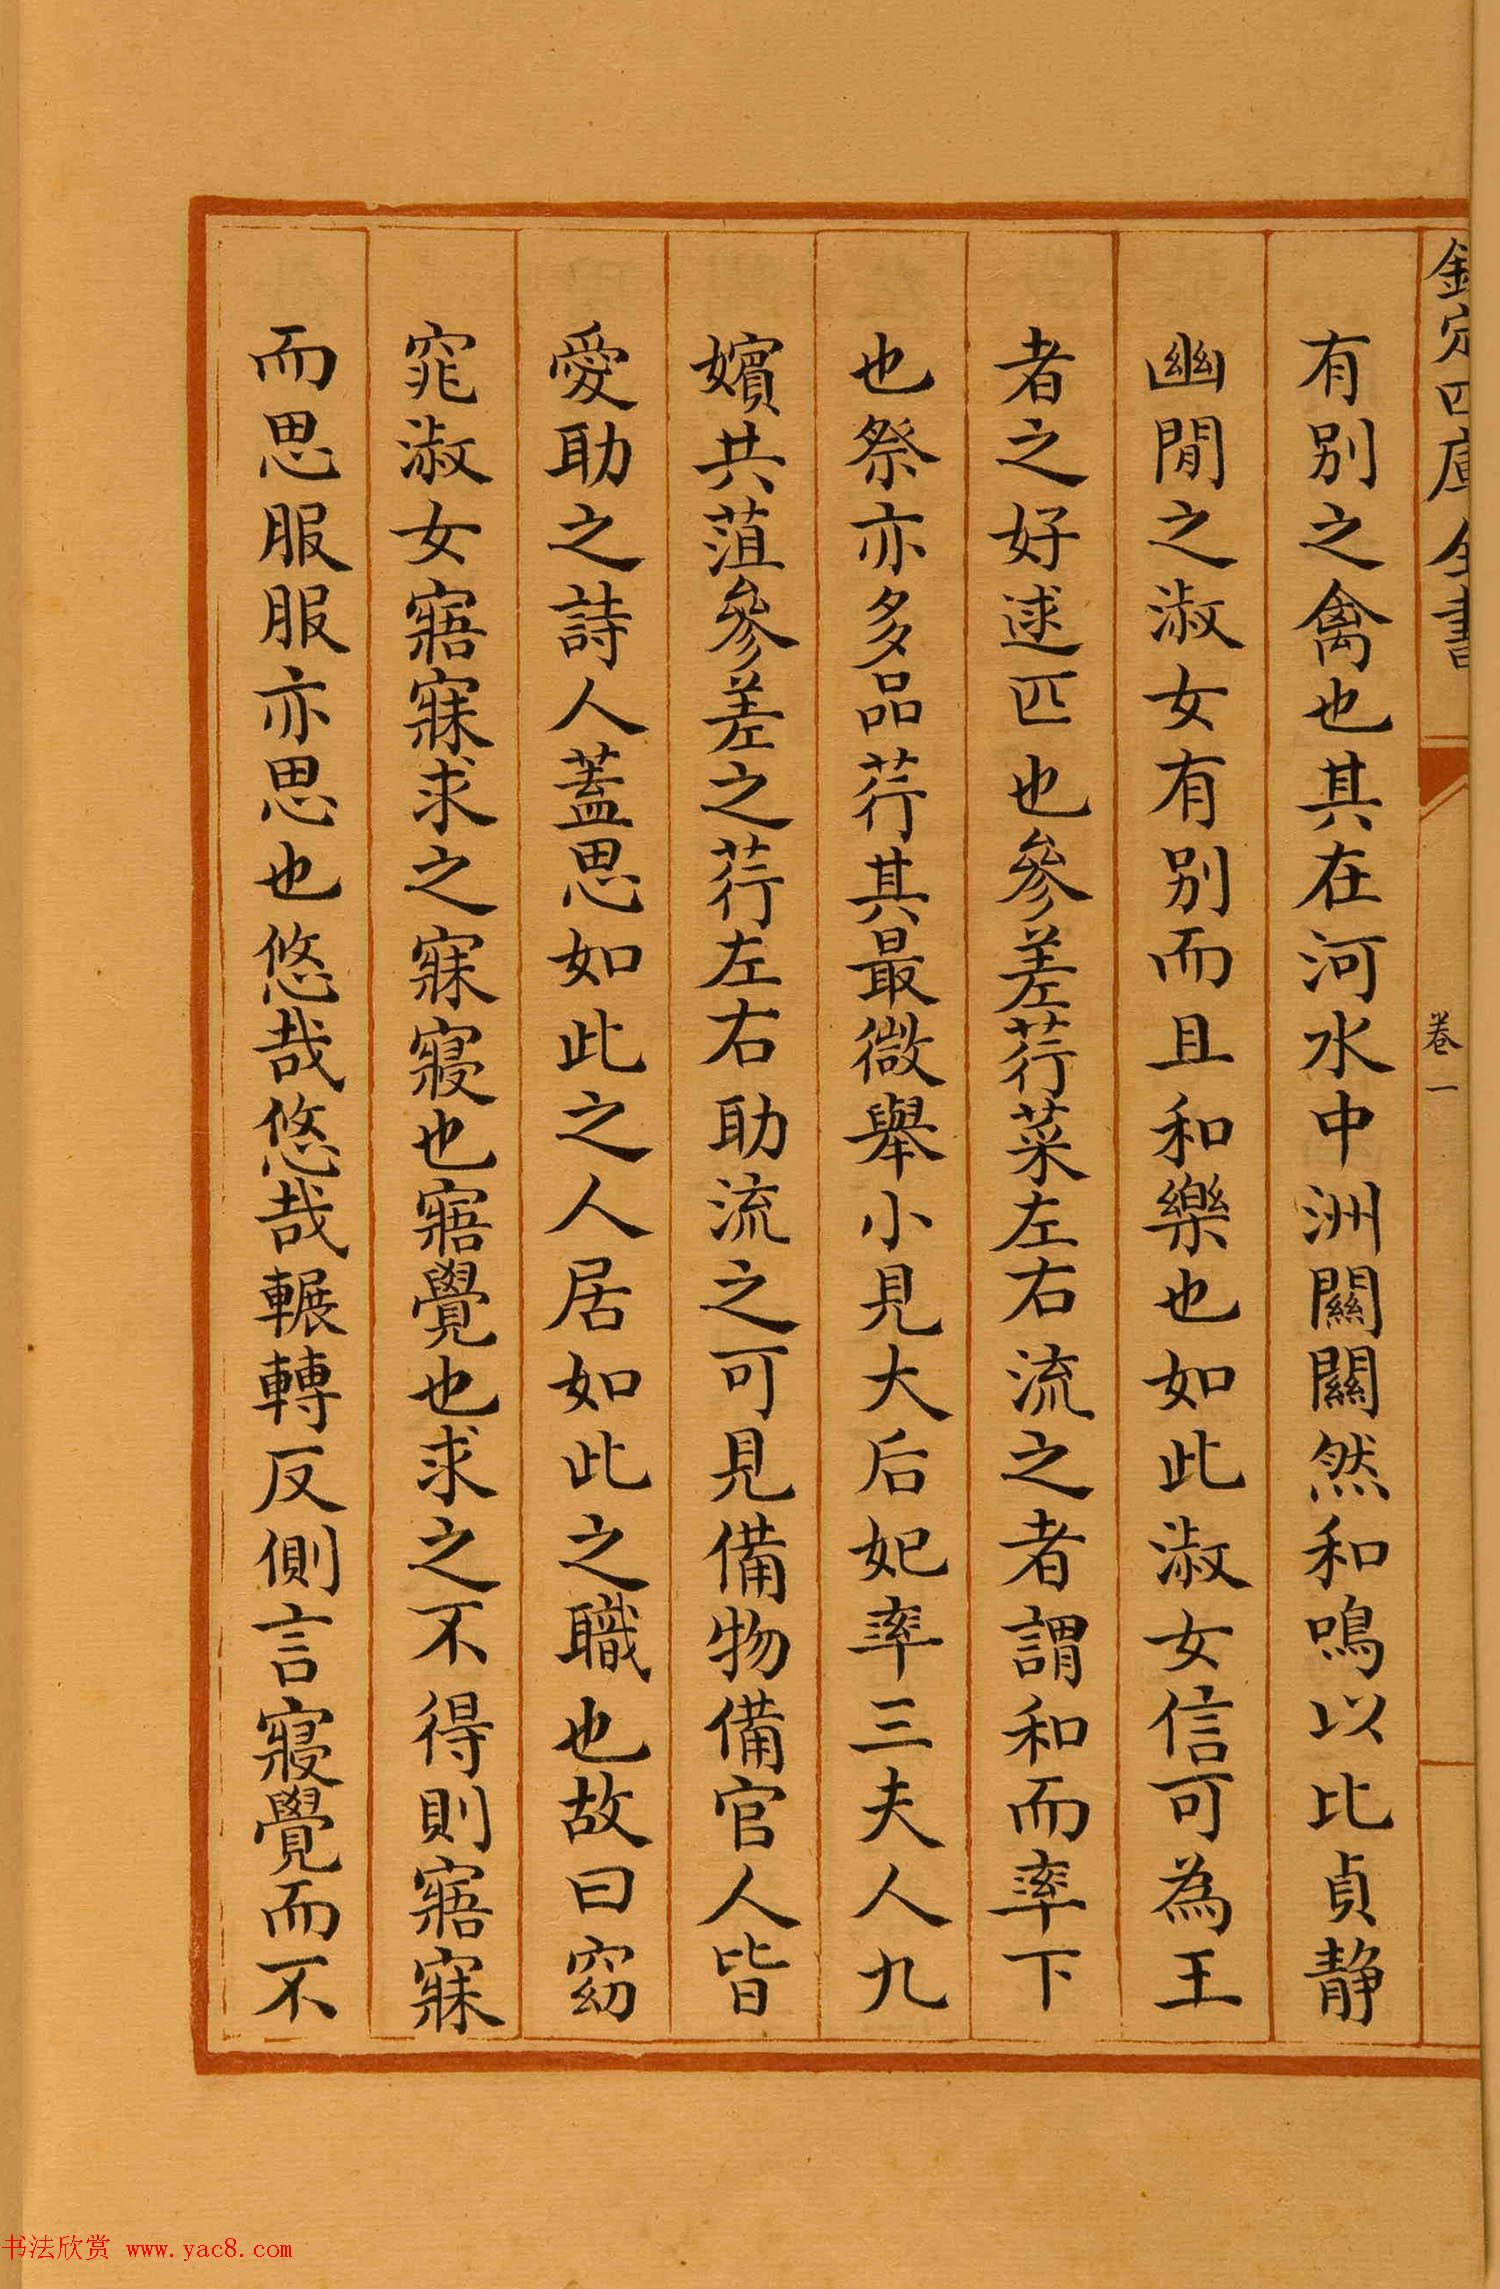 欽定四庫全書
卷一
有别之禽也其在河水中洲關關然和鳴以比貞静
幽閒之淑女有别而且和樂也如此淑女信可為王
者之好逑匹也參差荇菜左右流之者謂和而率下
也祭亦多品荇其最微舉小見大后妃率三夫人九
嬪共菹參差之荇左右助流之可見備物備官人皆
愛助之詩人蓋思如此之人居如此之職也故曰窈
窕淑女寤寐求之寐寢也寤覺也求之不得則寤寐
而思服服亦思也悠哉悠哉輾轉反側言寢覺而不
书法欣赏 www.yac8.com